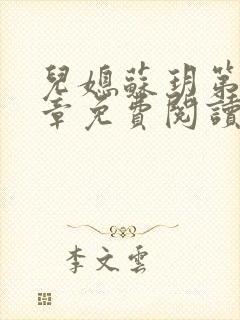 兒媳蘇玥第
章免費閱讀
李文雲